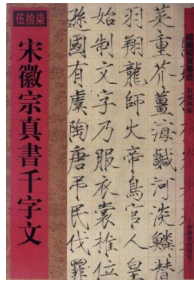 伍拾柒
宋徽宗真書千字文
菜重芥薑海鹹河淡鱗潛
羽翔龍師火帝鳥官人皇
始制文字乃服衣裳推位
國有虞陶唐弔民伐罪